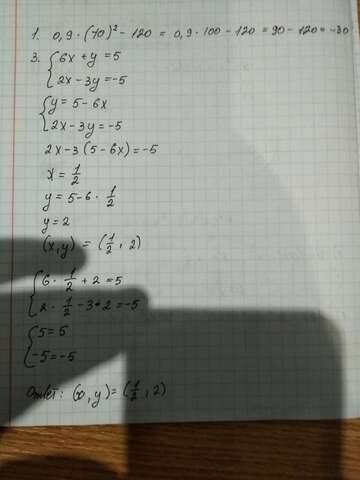 1. 0,9 · (10)² - 120 = 0,9 · 100 - 120 = 90 - 120 = -30
3. { 6x + y = 5
2x - 3y = -5
{ y = 5 - 6x
2x - 3y = -5
2x - 3(5 - 6x) = -5
x = 1/2
y = 5 - 6 · 1/2
y = 2
(x, y) = (1/2, 2)
{ 6 · 1/2 + 2 = 5
2 · 1/2 - 3 · 2 = -5
{ 5 = 5
-5 = -5
Ответ: (x, y) = (1/2, 2)